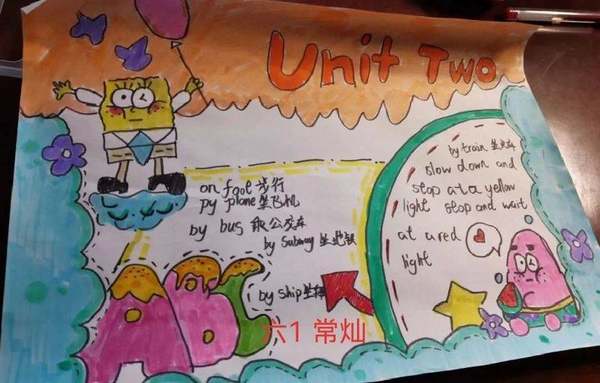 Unit Two
on foot 步行
py plane 坐飞机
by bus 乘公交车
by Subway 坐地铁
by ship 坐船
ABC
by train 坐火车
slow down and
stop at a yellow
light stop and wait
at a red
light
六1 常灿